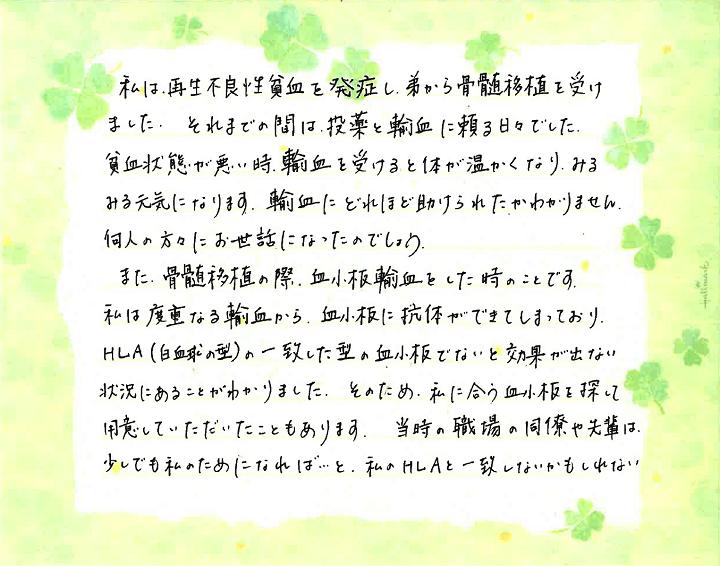 私は、再生不良性貧血を発症し、弟から骨髄移植を受け
ました. それまでの間は、投薬と輸血に頼る日々でした.
貧血状態が悪い時、輸血を受けると体が温かくなり、みる
みる元気になります. 輸血にどれほど助けられたかわかりません.
何人の方々にお世話になったのでしょう.
また、骨髄移植の際、血小板輸血をした時のことです.
私は度重なる輸血から、血小板に抗体ができてしまっており、
HLA(白血球の型)の一致した型の血小板でないと効果が出ない
状況にあることがわかりました. そのため、私に合う血小板を探して
用意していただいたこともあります. 当時の職場の同僚や先輩は、
少しでも私のためになれば…と、私のHLAと一致しないかもしれない
Hallmark